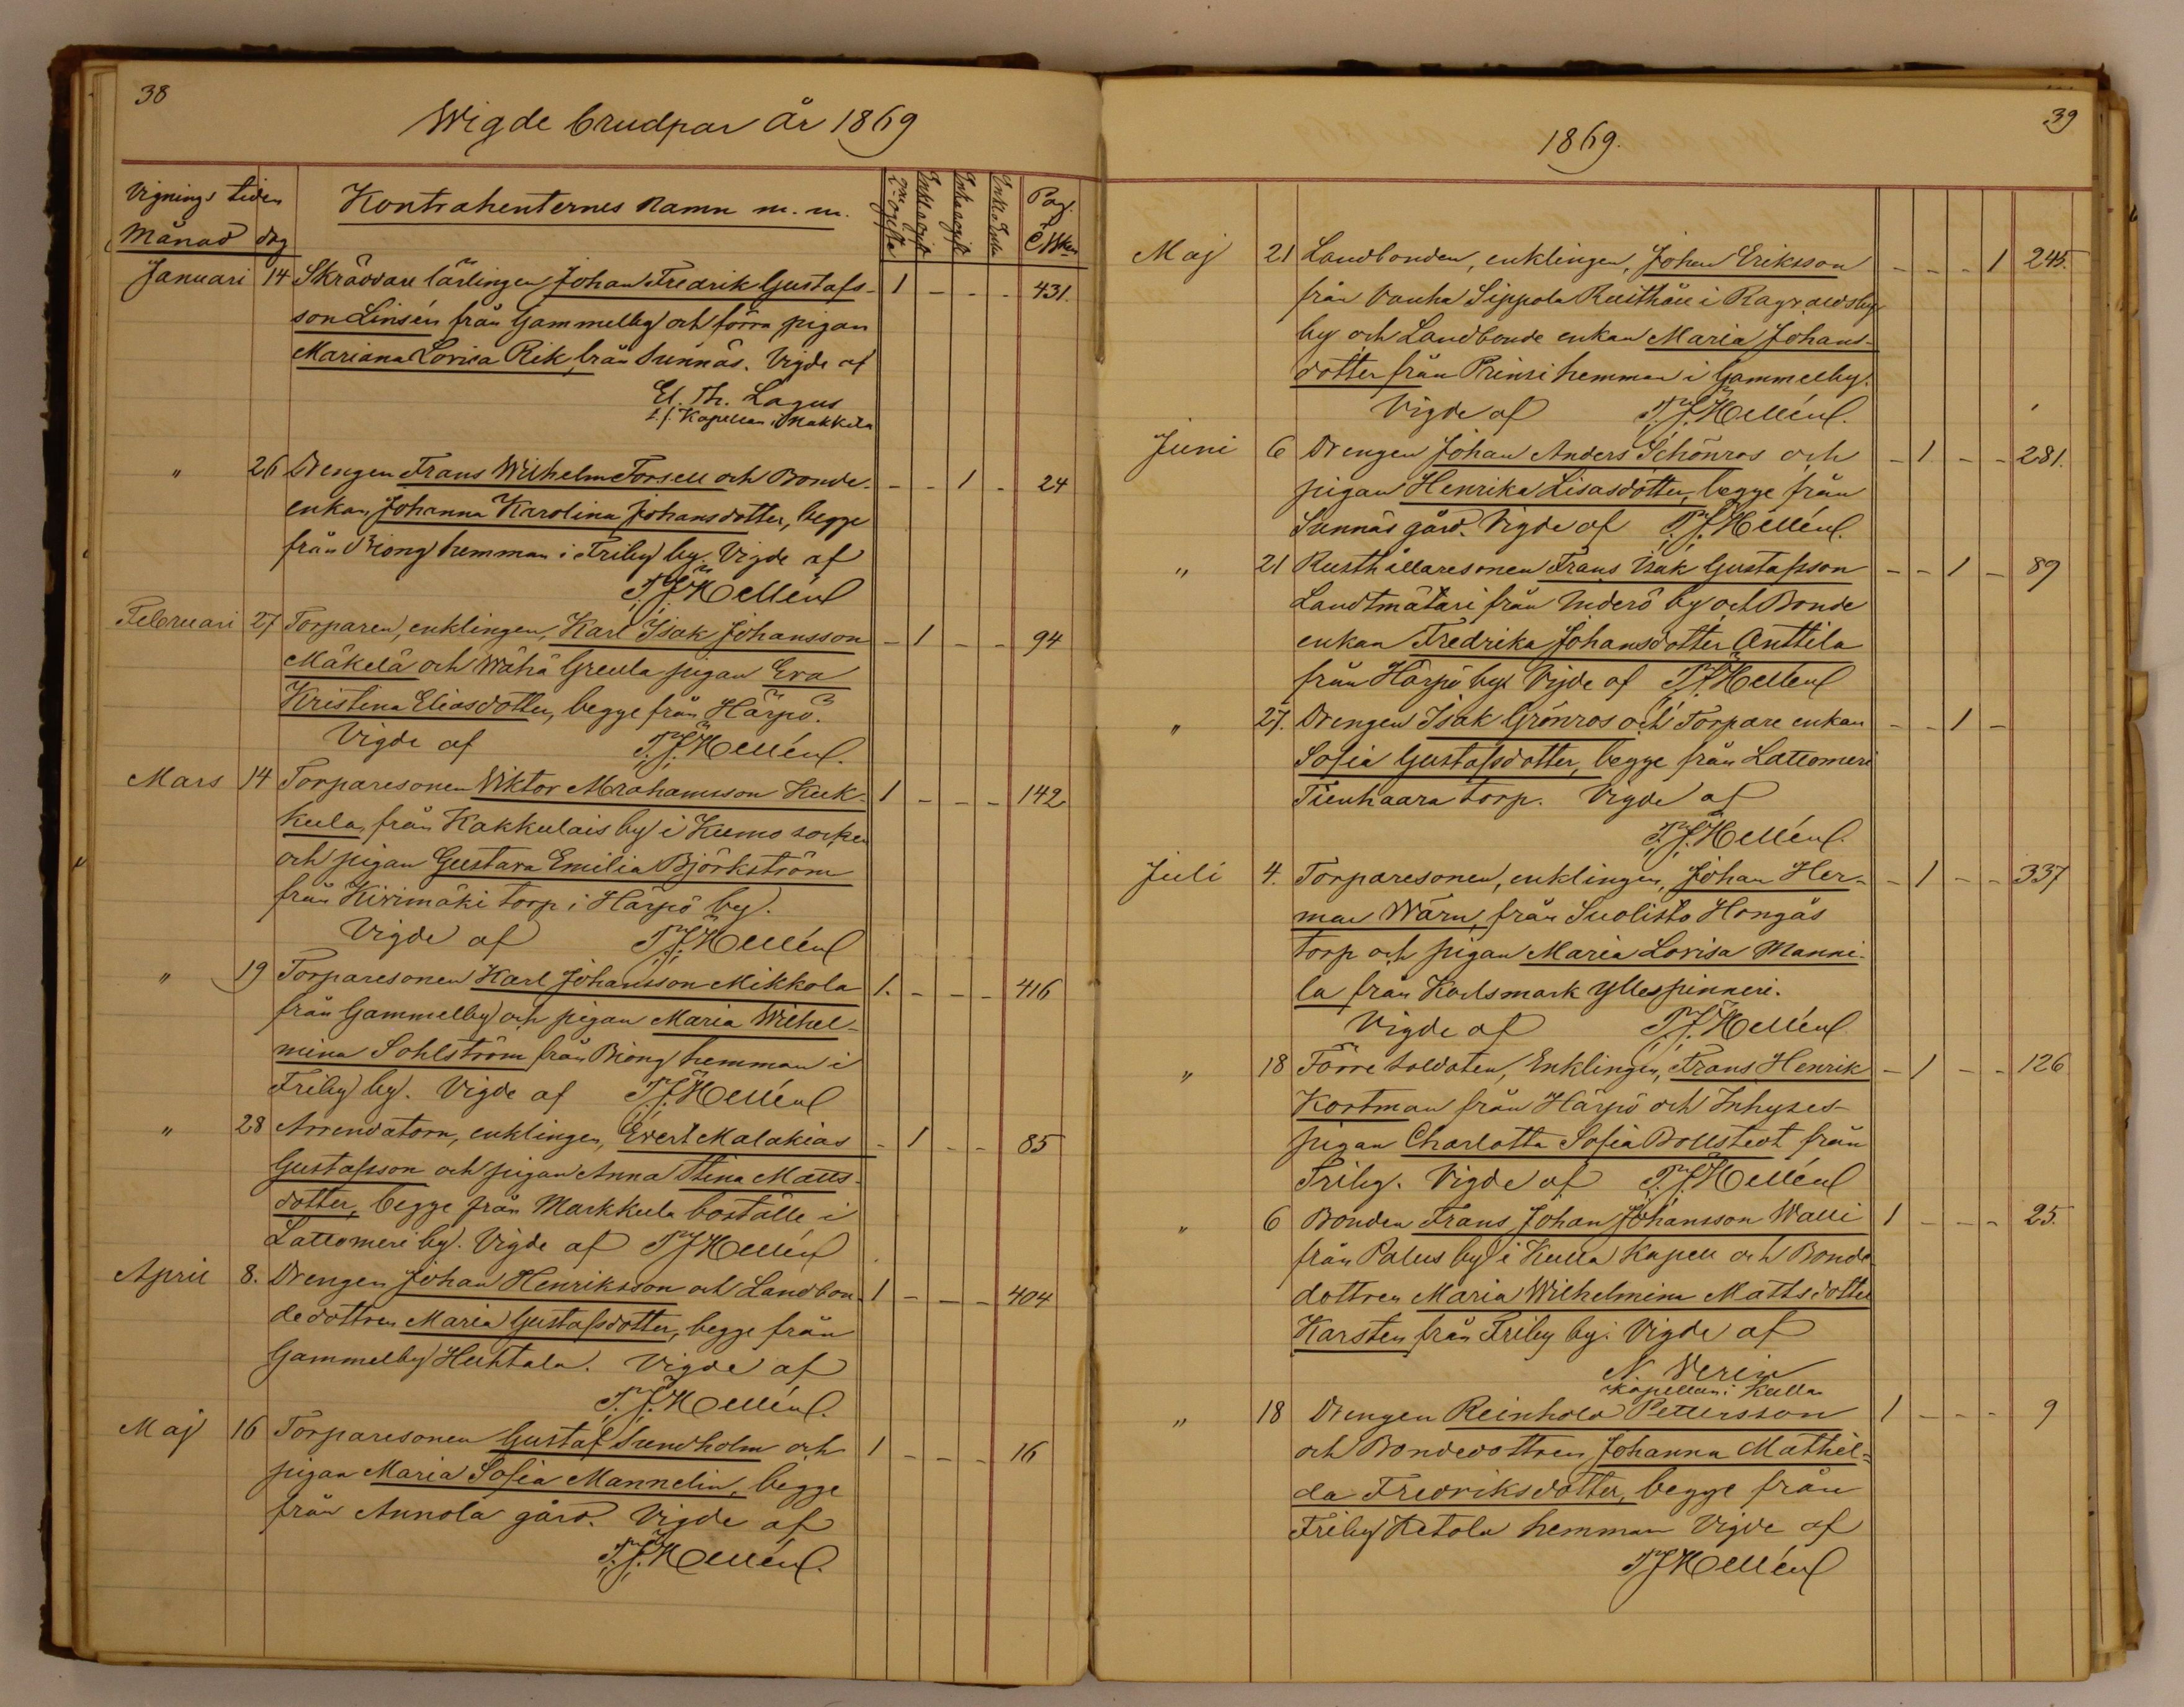 38
Wigde brudpar år 1869
Vignings tiden
Månad dag
Kontrahenternes namn m. m.
2ne ogifta
Enkl. o. ogift
Enka o. ogift
Enkl. o. Enka
Pag.
Januari 14 Skräddare lärlingen Johan Fredrik Gustafs- 1 - - - 431.
son Linsén från Gammelby och förra pigan
Mariana Lovisa Rik från Sunnäs. Vigde af
El. Th. Lagus
t.f. Kapellan i Nakkila
" 26 Drengen Frans Wilhelm Forsell och Bonde- - - 1 - 24
enkan Johanna Karolina Johansdotter, begge
från Biong hemman i Friby by. Vigde af
T. J. Hellén
Februari 27 Torparen, enklingen, Karl Isak Johansson - 1 - - 94
Mäkelä och Wähä Greula pigan Eva
Kristina Eliasdotter, begge från Härpö.
Vigde af T. J. Hellén.
Mars 14 Torparesonen Viktor Abrahamsson Kuk- 1 - - - 142
kula, från Kakkulais by i Kumo socken
och pigan Gustava Emilia Björkström
från Kivimäki torp i Härpö by.
Vigde af T. J. Hellén
" 19 Torparesonen Karl Johansson Mikkola 1. - - - 416
från Gammelby och pigan Maria Wilhel-
mina Sohlström från Biong hemman i
Friby by. Vigde af T. J. Hellén
" 28 Arrendatorn, enklingen, Evert Malakias - 1 - - 85
Gustafsson och pigan Anna Stina Matts-
dotter, begge från Markkula boställe i
Lattomeri by. Vigde af T J Hellén
April 8. Drengen Johan Henriksson och Landbon- 1 - - - 404
dedottren Maria Gustafsdotter, begge från
Gammelby Huhtala. Vigde af
T. J. Hellén.
Maj 16 Torparesonen Gustaf Sundholm och 1 - - - 16
pigan Maria Sofia Mannelin, begge
från Annola gård. Vigde af
T. J. Hellén.
39
1869.
Maj 21 Landbonden, enklingen, Johan Eriksson - - - 1 245.
från Vanha Sippola Rusthåll i Ragvaldsby
by och Landbonde enkan Maria Johans-
dotter från Prinsi hemman i Gammelby.
Vigde af T. J. Hellén.
Juni 6 Drengen Johan Anders Schönros och - 1 - - 281.
pigan Henrika Lisasdotter, begge från
Sunnäs gård. Vigde af T. J. Hellén.
" 21 Rusthållaresonen Frans Isak Gustafsson - - 1 - 89
Landtmätari från Inderö by och Bonde
enkan Fredrika Johansdotter Anttila
från Härpö by. Vigde af T. J. Hellén
" 27. Drengen Isak Grönros och Torpare enkan - - 1 -
Sofia Gustafsdotter, begge från Lattomeri
Tienhaara torp. Vigde af
T. J. Hellén.
Juli 4. Torparesonen, enklingen, Johan Her- - 1 - - 337
man Wärn, från Suolisto Hongås
torp och pigan Maria Lovisa Manni-
la från Karlsmark Yllespinneri.
Vigde af T. J. Hellén
" 18 Förre soldaten, Enklingen, Frans Henrik - 1 - - 126
Kortman från Härpö och Inhyses-
pigan Charlotta Sofia Bollstedt från
Friby. Vigde af T. J. Hellén
" 6 Bonden Frans Johan Johansson Walli 1 - - - 25.
från Palus by i Kulla Kapell och Bonde
dottren Maria Wilhelmina Mattsdotter
Karsten från Friby by. Vigde af
N. Verin
Kapellan i Kulla
" 18 Drengen Reinhold Pettersson 1 - - - 9
och Bondedottren Johanna Mathil-
da Fredriksdotter, begge från
Friby Ketola hemman Vigde af
T J Hellén